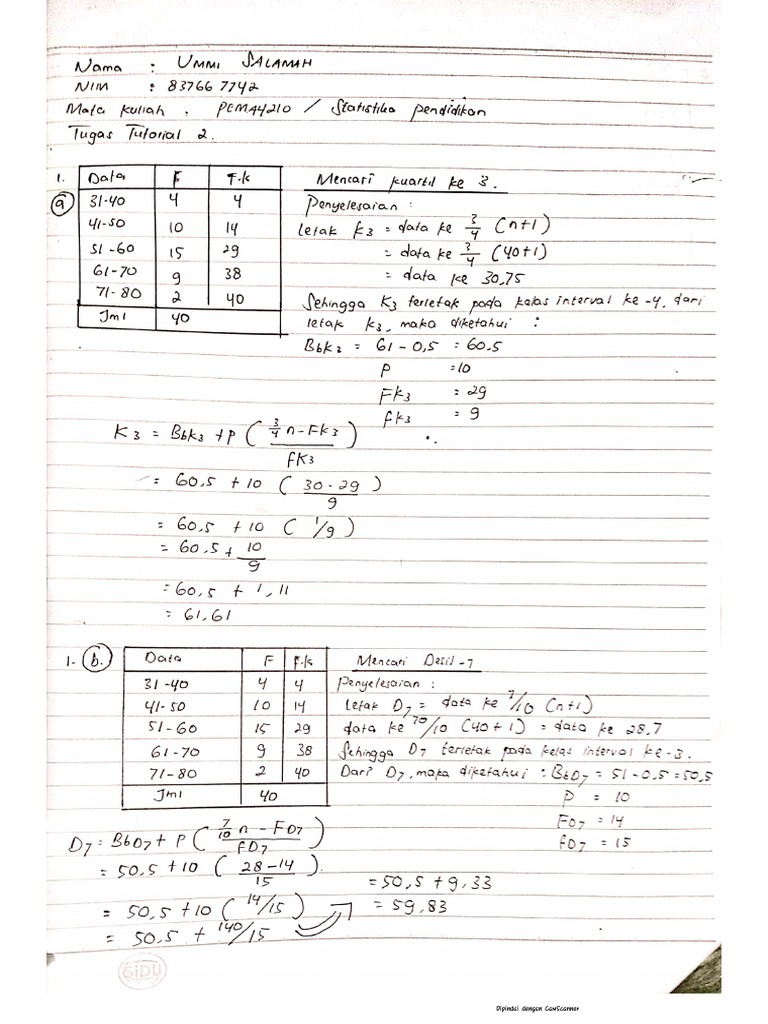 Nama : UMMI SALAMAH
NIM : 83766 7742
Mata kuliah : PEMA4210 / Statistika pendidikan
Tugas Tutorial 2.
1. Data F F.k Mencari kuartil ke 3.
a 31-40 4 4 Penyelesaian :
41-50 10 14 Letak K3 = data ke 3/4 (n+1)
51-60 15 29 = data ke 3/4 (40+1)
61-70 9 38 = data ke 30,75
71-80 2 40 Sehingga K3 terletak pada kelas interval ke-4, dari
Jml 40 letak K3, maka diketahui :
Bbk3 = 61 - 0,5 = 60.5
P = 10
Fk3 = 29
fk3 = 9
K3 = Bbk3 + P ( 3/4 n - Fk3 / fK3 )
= 60,5 + 10 ( 30 - 29 / 9 )
= 60,5 + 10 ( 1/9 )
= 60,5 + 10/9
= 60,5 + 1,11
= 61,61
1. b. Data F F.k Mencari Desil-7
31-40 4 4 Penyelesaian :
41-50 10 14 Letak D7 = data ke 7/10 (n+1)
51-60 15 29 data ke 70/10 (40+1) = data ke 28,7
61-70 9 38 Sehingga D7 terletak pada kelas interval ke-3.
71-80 2 40 Dari D7, maka diketahui : BbD7 = 51 - 0,5 = 50,5
Jml 40 P = 10
FD7 = 14
fD7 = 15
D7 = BbD7 + P ( 7/10 n - FD7 / fD7 )
= 50,5 + 10 ( 28 - 14 / 15 )
= 50,5 + 10 ( 14/15 )
= 50,5 + 140/15
= 50,5 + 9,33
= 59,83
SiDU
Dipindai dengan CamScanner